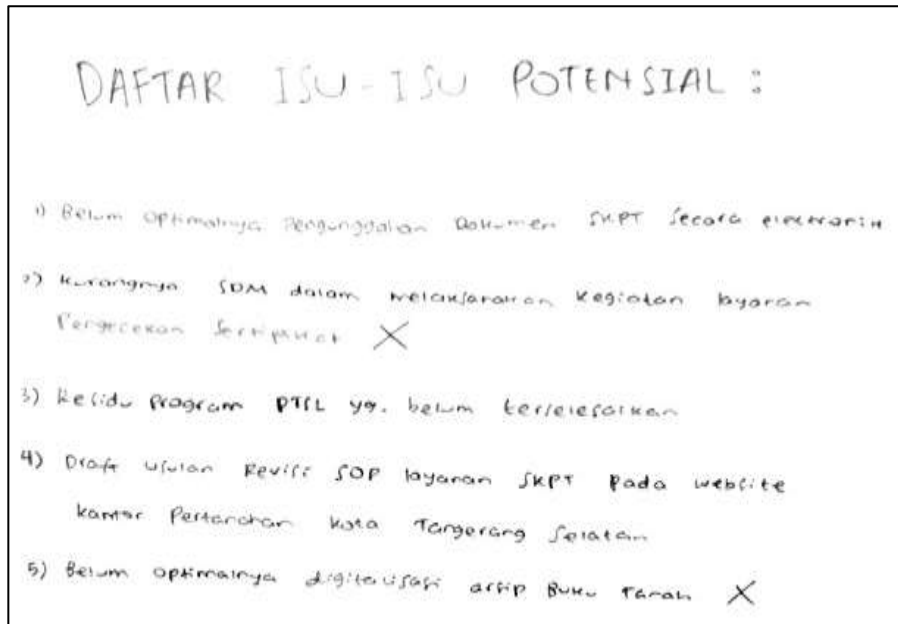 DAFTAR ISU-ISU POTENSIAL :
1) Belum optimalnya Pengunggahan Dokumen SKPT secara electronik
2) kurangnya SDM dalam melaksanakan kegiatan layanan
Pengecekan Sertipikat X
3) Residu program PTSL yg. belum terselesaikan
4) Draft usulan Revisi SOP layanan SKPT pada website
kantor Pertanahan kota Tangerang Selatan
5) Belum optimalnya digitalisasi arsip Buku Tanah X